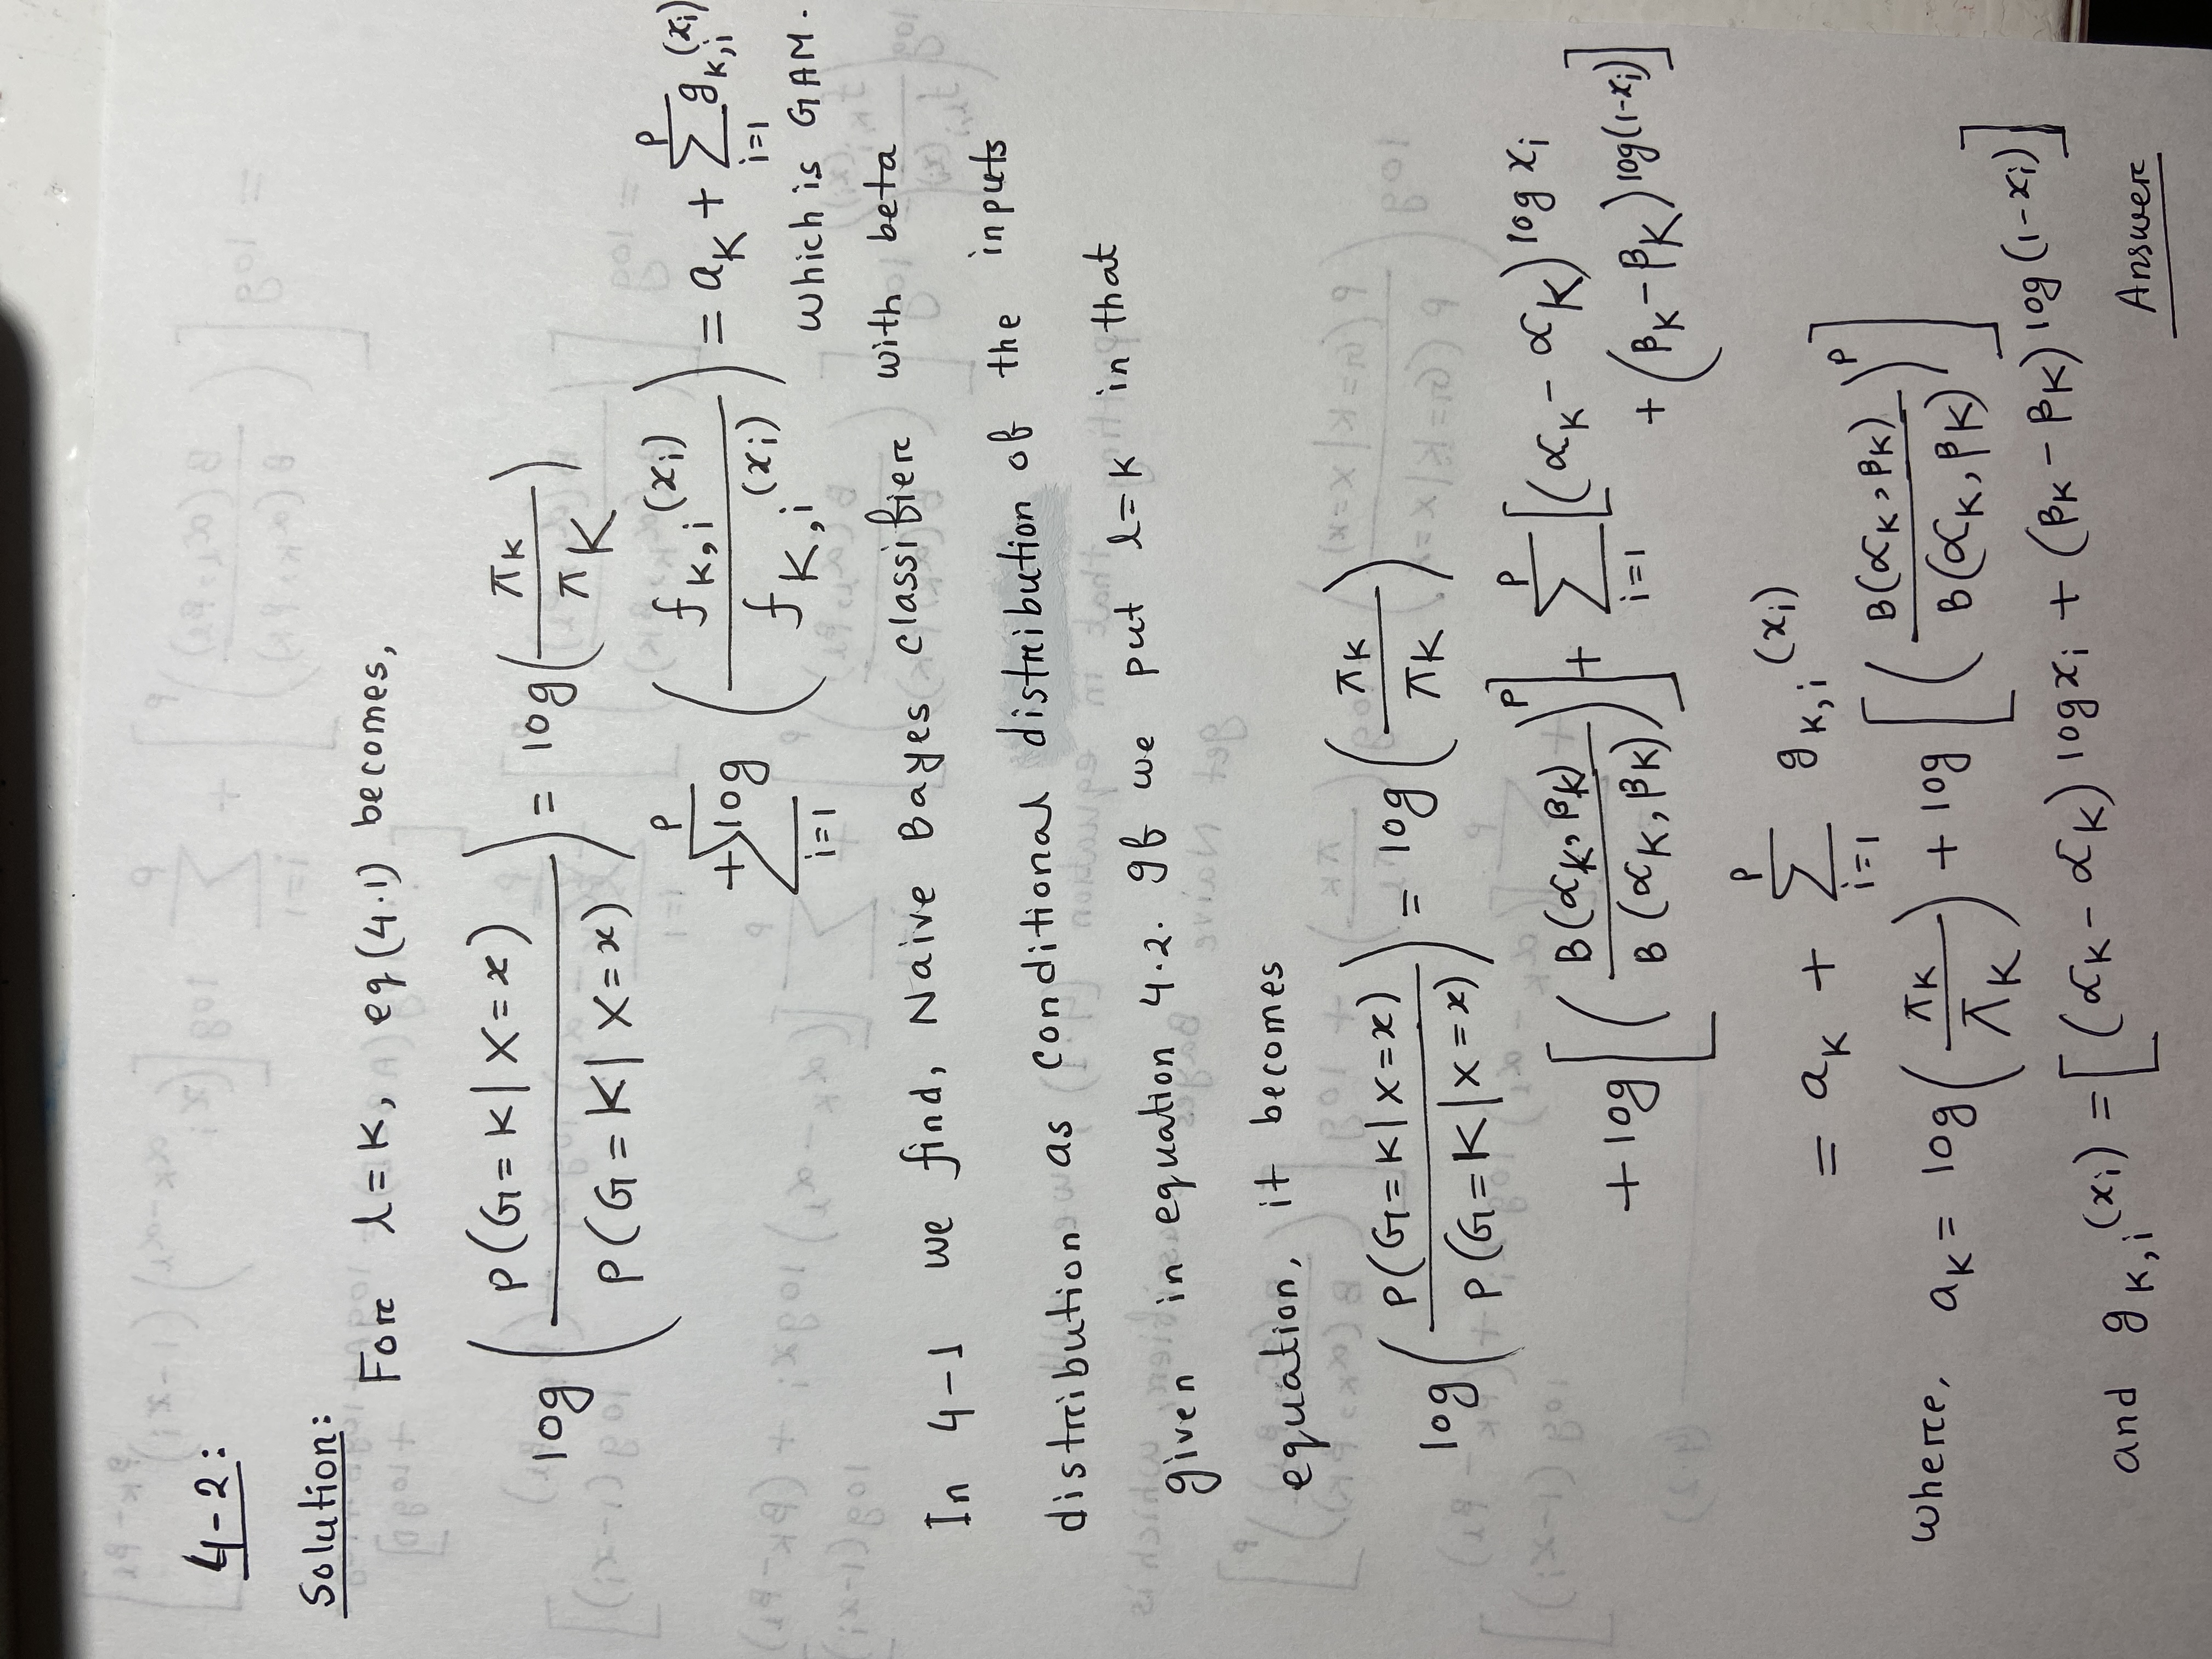 4-2:
Solution:
Forc l=K, eq(4.1) becomes,
log ( P(G=k|X=x) / P(G=K|X=x) ) = log ( πk / πK )
+ ∑_{i=1}^{P} log ( f_{k,i}(xi) / f_{K,i}(xi) ) = a_k + ∑_{i=1}^{P} g_{k,i}(xi)
which is GAM.
In 4-1 we find, Naive Bayes classifierc with beta
distrcibution as conditional distribution of the inputs
given in equation 4.2. If we put l=K in that
equation, it becomes
log ( P(G=k|X=x) / P(G=K|X=x) ) = log ( πk / πK )
+ log [ ( B(αK, βK) / B(αk, βk) )^P ] + ∑_{i=1}^{P} [ (αk - αK) log xi
+ (βk - βK) log(1-xi) ]
= a_k + ∑_{i=1}^{P} g_{k,i}(xi)
wherce, a_k = log ( πk / πK ) + log [ ( B(αK, βK) / B(αk, βk) )^P ]
and g_{k,i}(xi) = [ (αk - αK) log xi + (βk - βK) log(1-xi) ]
Answerc